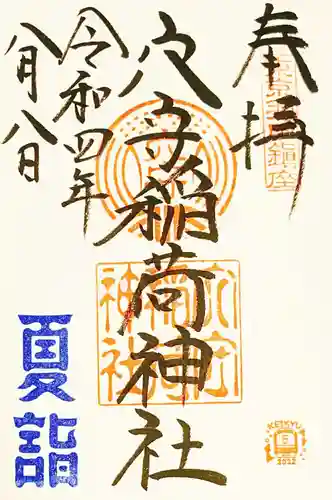 奉拝
穴守稲荷神社
令和四年
八月八日
夏詣
東京羽田鎮座
穴守
稲荷
神社
KEIKYU
2022